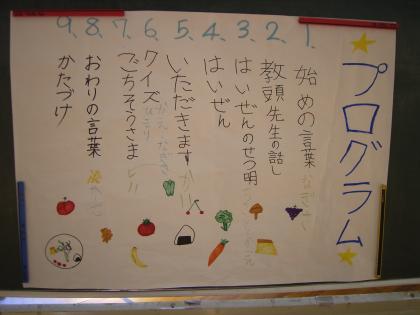 プログラム
1. 始めの言葉
2. 教頭先生の話し
3. はいぜんのせつ明
4. はいぜん
5. いただきます
6. クイズ
7. ごちそうさま
8. おわりの言葉
9. かたづけ